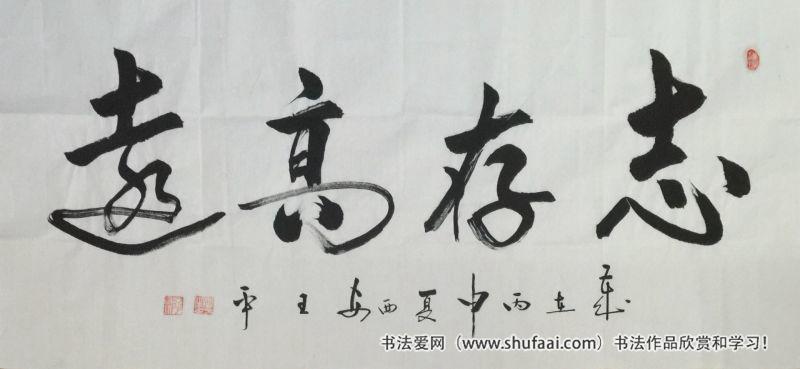 志存高遠
歲在丙申夏西安王平
书法爱网（www.shufaai.com）书法作品欣赏和学习！